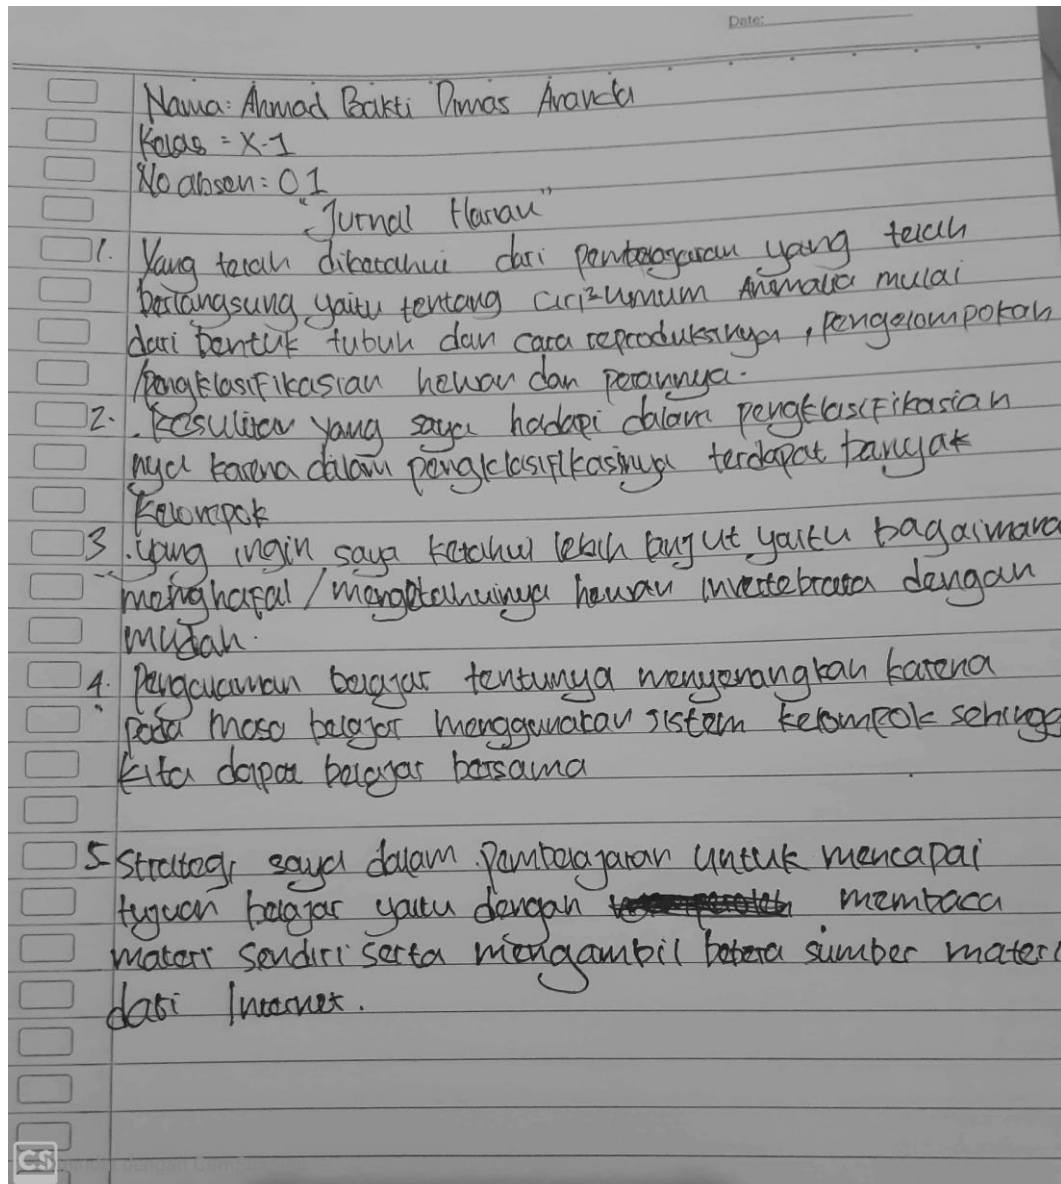 Date:
Nama: Ahmad Bakti Dimas Ananda
Kelas = X-1
No absen: 01
"Jurnal Harian"
1. Yang telah diketahui dari pembelajaran yang telah
berlangsung yaitu tentang ciri²umum Animalia mulai
dari bentuk tubuh dan cara reproduksinya, pengelompokan
/pengklasifikasian hewan dan perannya.
2. Kesulitan yang saya hadapi dalam pengklasifikasian
nya karena dalam pengklasifikasinya terdapat banyak
kelompok
3. yang ingin saya ketahui lebih lanjut yaitu bagaimana
menghafal/mengetahuinya hewan invertebrata dengan
mudah.
4. Pengalaman belajar tentunya menyenangkan karena
pada masa belajar menggunakan sistem kelompok sehingga
kita dapat belajar bersama
5 Strategi saya dalam pembelajaran untuk mencapai
tujuan belajar yaitu dengan membaca
materi sendiri serta mengambil bebera sumber materi
dari Internet.
CS